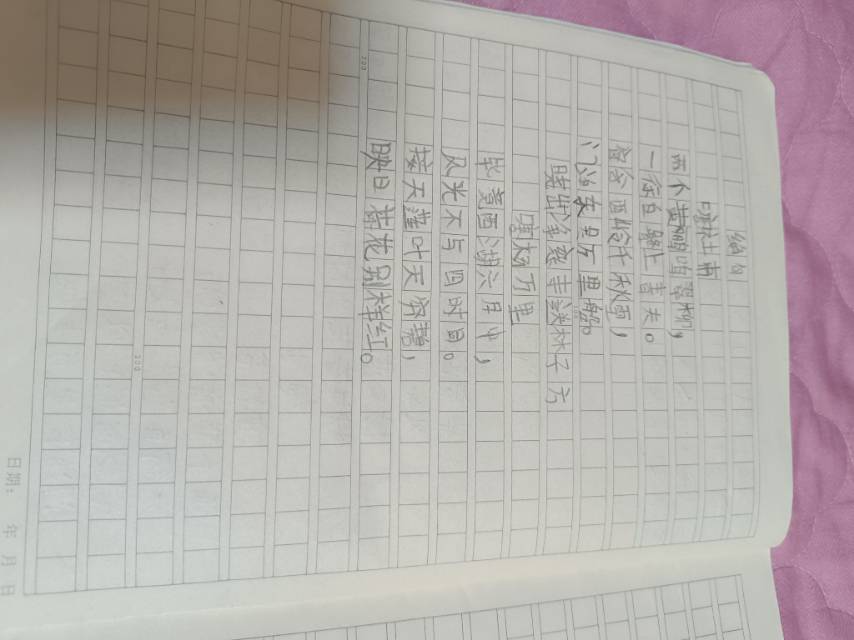 绝句
唐杜甫
两个黄鹂鸣翠柳,
一行白鹭上青天。
窗含西岭千秋雪,
门泊东吴万里船。
晓出净慈寺送林子方
宋杨万里
毕竟西湖六月中,
风光不与四时同。
接天莲叶无穷碧,
映日荷花别样红。
200
300
日期: 年 月 日